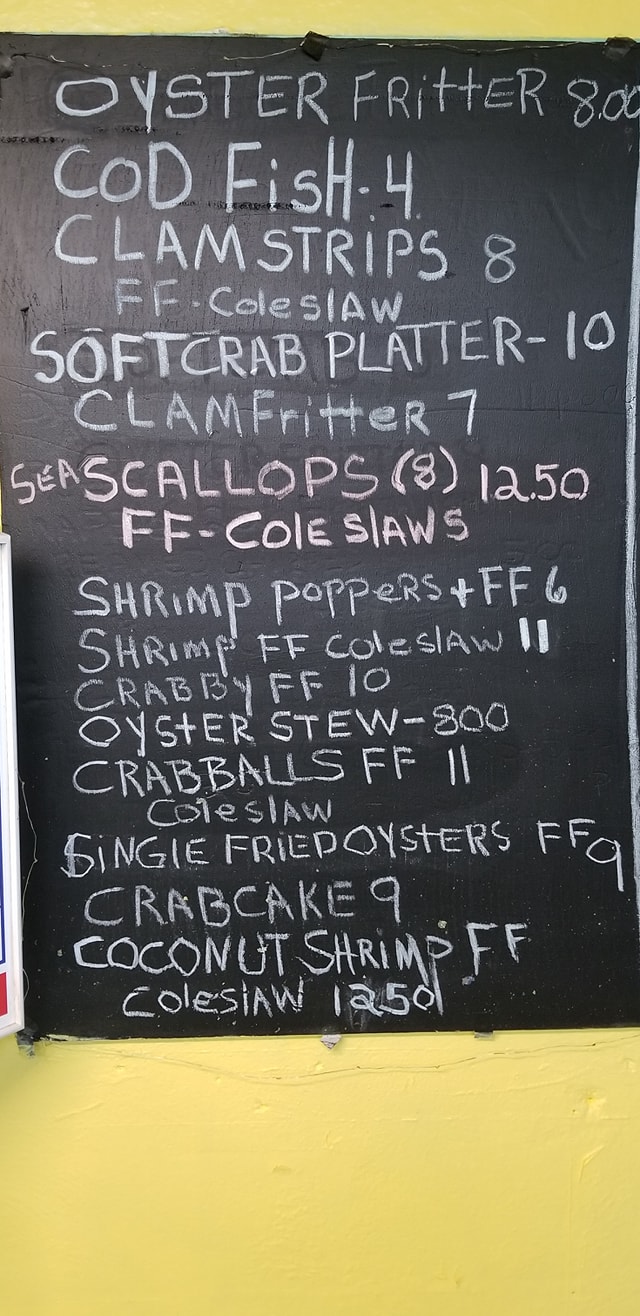 OYSTER FRittER 8.00
COD FisH-4
CLAM STRiPS 8
FF-ColeslAW
SOFTCRAB PLATTER-10
CLAMFritteR 7
SEA SCALLOPS (8) 12.50
FF-COlE SlAWS
SHRimp POPPeRS + FF 6
SHRimp FF ColeslAW 11
CRABBy FF 10
OYStER STEW-800
CRABBALLS FF 11
ColeslAW
SiNGlE FRiEDOYSTERS FF 9
CRABCAKE 9
COCONUT SHRimp FF
ColeslAW 1250